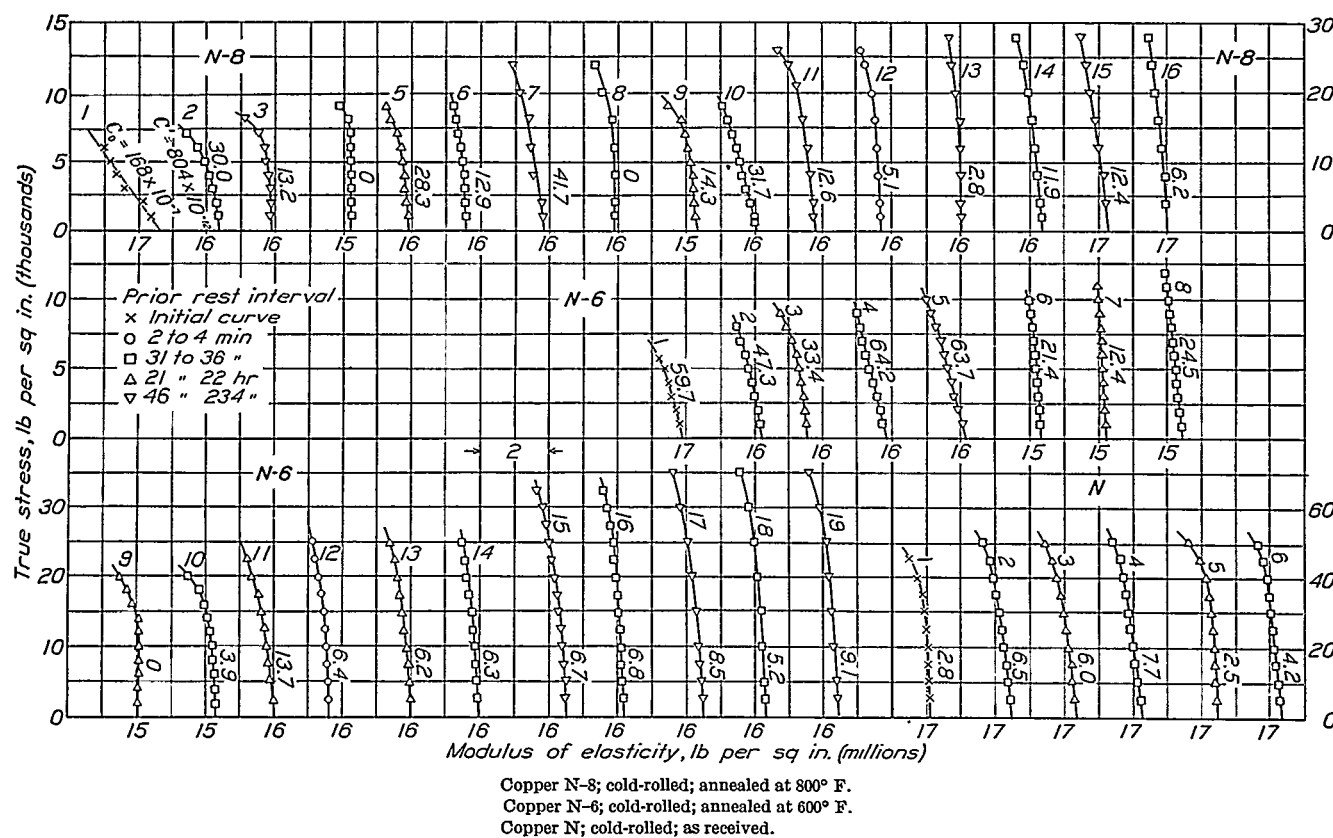 True stress, lb per sq in. (thousands)
15
10
5
0
N-8
30
20
10
0
N-8
1 2 3 5 6 7 8 9 10 11 12 13 14 15 16
C₀ = 168 × 10⁻⁷
C'=804 × 10⁻¹²
30.0 13.2 0 28.3 12.9 41.7 0 14.3 31.7 12.6 5.1 2.8 11.9 12.4 6.2
17 16 16 15 16 16 16 16 15 16 16 16 16 16 17 17
10
5
0
Prior rest interval
× Initial curve
○ 2 to 4 min
□ 31 to 36 "
△ 21 " 22 hr
▽ 46 " 234 "
N-6
1 2 3 4 5 6 7 8
59.7 47.3 33.4 64.2 63.7 21.4 12.4 24.5
17 16 16 16 16 15 15 15
2
30
20
10
0
N-6
N
60
40
20
0
9 10 11 12 13 14 15 16 17 18 19 1 2 3 4 5 6
0 3.9 13.7 6.4 6.2 6.3 6.7 6.8 8.5 5.2 9.1 2.8 6.5 6.0 7.7 2.5 4.2
15 15 16 16 16 16 16 16 16 16 16 17 17 17 17 17 17
Modulus of elasticity, lb per sq in. (millions)
Copper N-8; cold-rolled; annealed at 800° F.
Copper N-6; cold-rolled; annealed at 600° F.
Copper N; cold-rolled; as received.